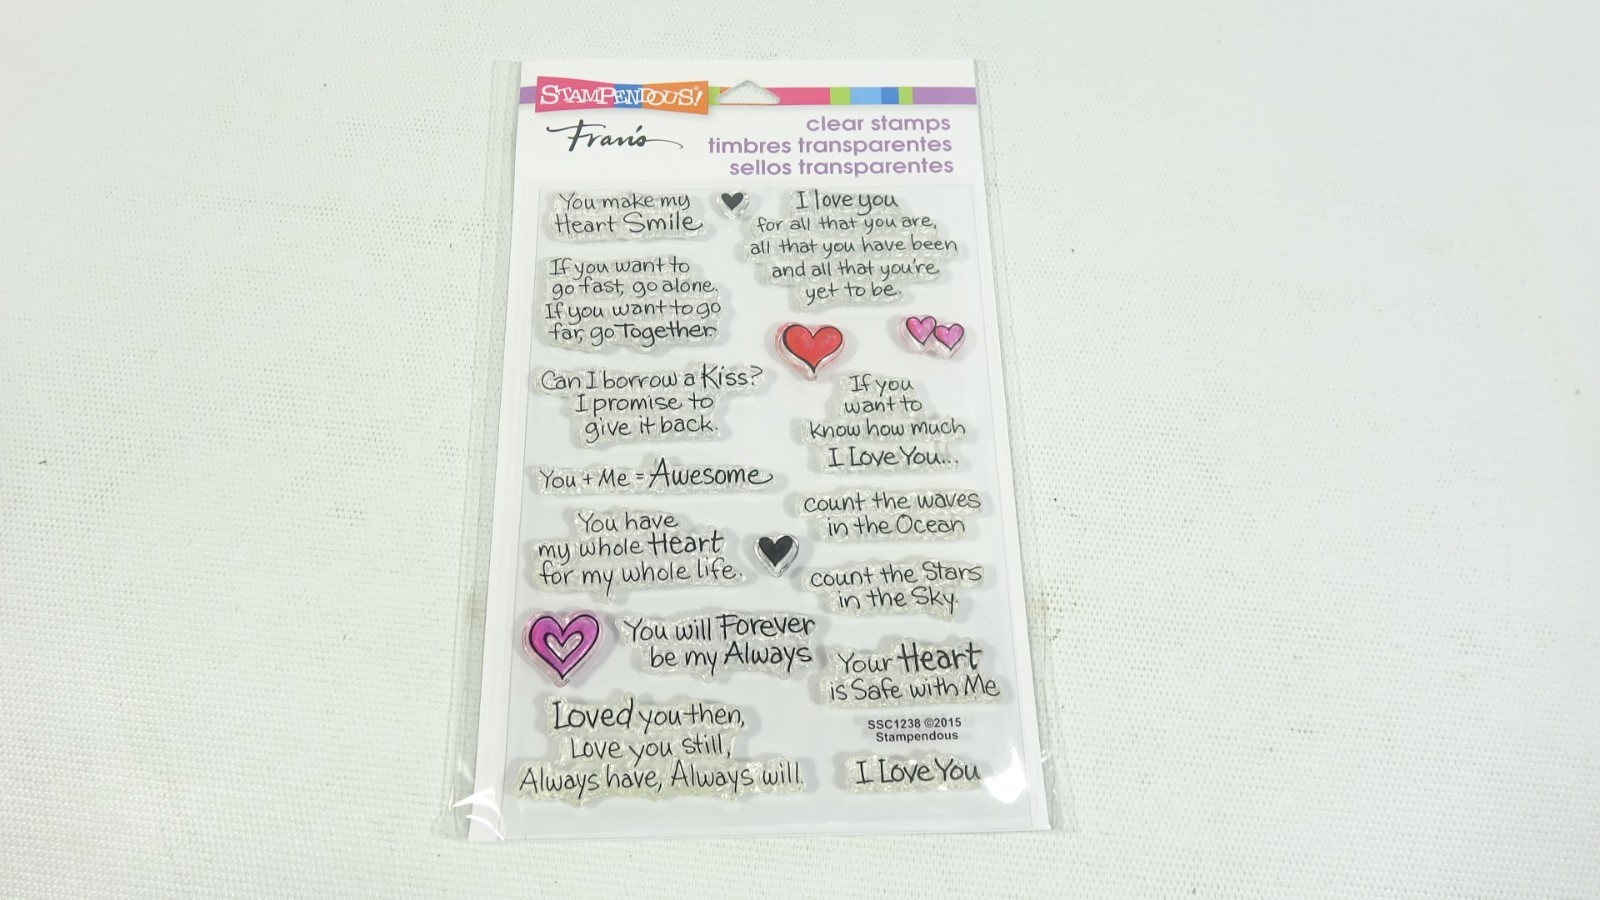 STAMPENDOUS!
Fran's
clear stamps
timbres transparentes
sellos transparentes
You make my
Heart Smile
I love you
for all that you are,
all that you have been
and all that you're
yet to be.
If you want to
go fast, go alone.
If you want to go
far, go Together.
Can I borrow a Kiss?
I promise to
give it back.
If you
want to
know how much
I Love You...
You + Me = Awesome
count the waves
in the Ocean
You have
my whole Heart
for my whole life.
count the Stars
in the Sky.
You will Forever
be my Always
Your Heart
is Safe with Me
Loved you then,
Love you still,
Always have, Always will.
SSC1238 ©2015
Stampendous
I Love You